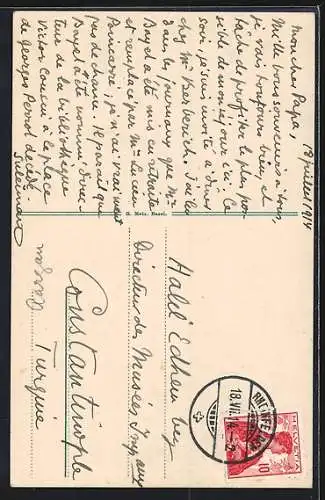 18 juillet 1914
Mon cher Papa,
Mille bons souvenirs à tous,
je vais toujours bien, et
tâche de profiter le plus pos-
sible de mon séjour ici. Ce
soir, je suis invité à dîner
chez Mr
J'ai lu
dans les journaux que Mr
Bayet a été mis en retraite
et remplacé par Mr Lucien
Poincaré, je n'ai vraiment
pas de chance. Il paraît que
Bayet a été nommé direc-
teur de la bibliothèque
Victor Cousin à la place
de Georges Perrot décédé.
G. Metz, Basel.
Halil Edhem bey
Directeur des Musées Impaux
Constantinople
Turquie
RHEINFELDEN
18.VII.14.-2
HELVETIA
10